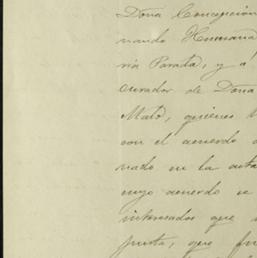 Doña Concepción
nando
ria Parada, y á
curador de Doña
Mató, quienes
con el acuerdo
nado en la acta
cuyo acuerdo se
interesados que
junta, que